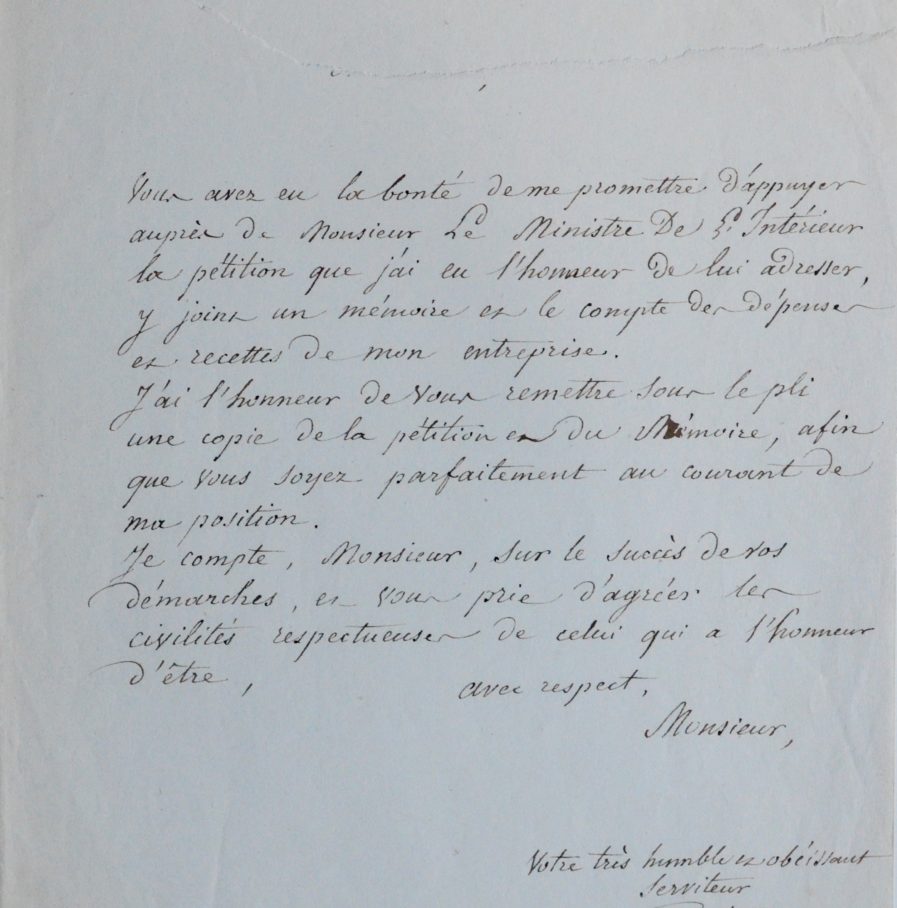 Vous avez eu la bonté de me promettre d'appuyer
auprès de Monsieur Le Ministre De L'Intérieur
la pétition que j'ai eu l'honneur de lui adresser,
y joins un mémoire et le compte des dépenses
et recettes de mon entreprise.
J'ai l'honneur de vous remettre sous le pli
une copie de la pétition et du Mémoire, afin
que vous soyez parfaitement au courant de
ma position.
Je compte, Monsieur, sur le succès de vos
démarches, et vous prie d'agréer les
civilités respectueuses de celui qui a l'honneur
d'être,
avec respect,
Monsieur,
Votre très humble et obéissant
serviteur